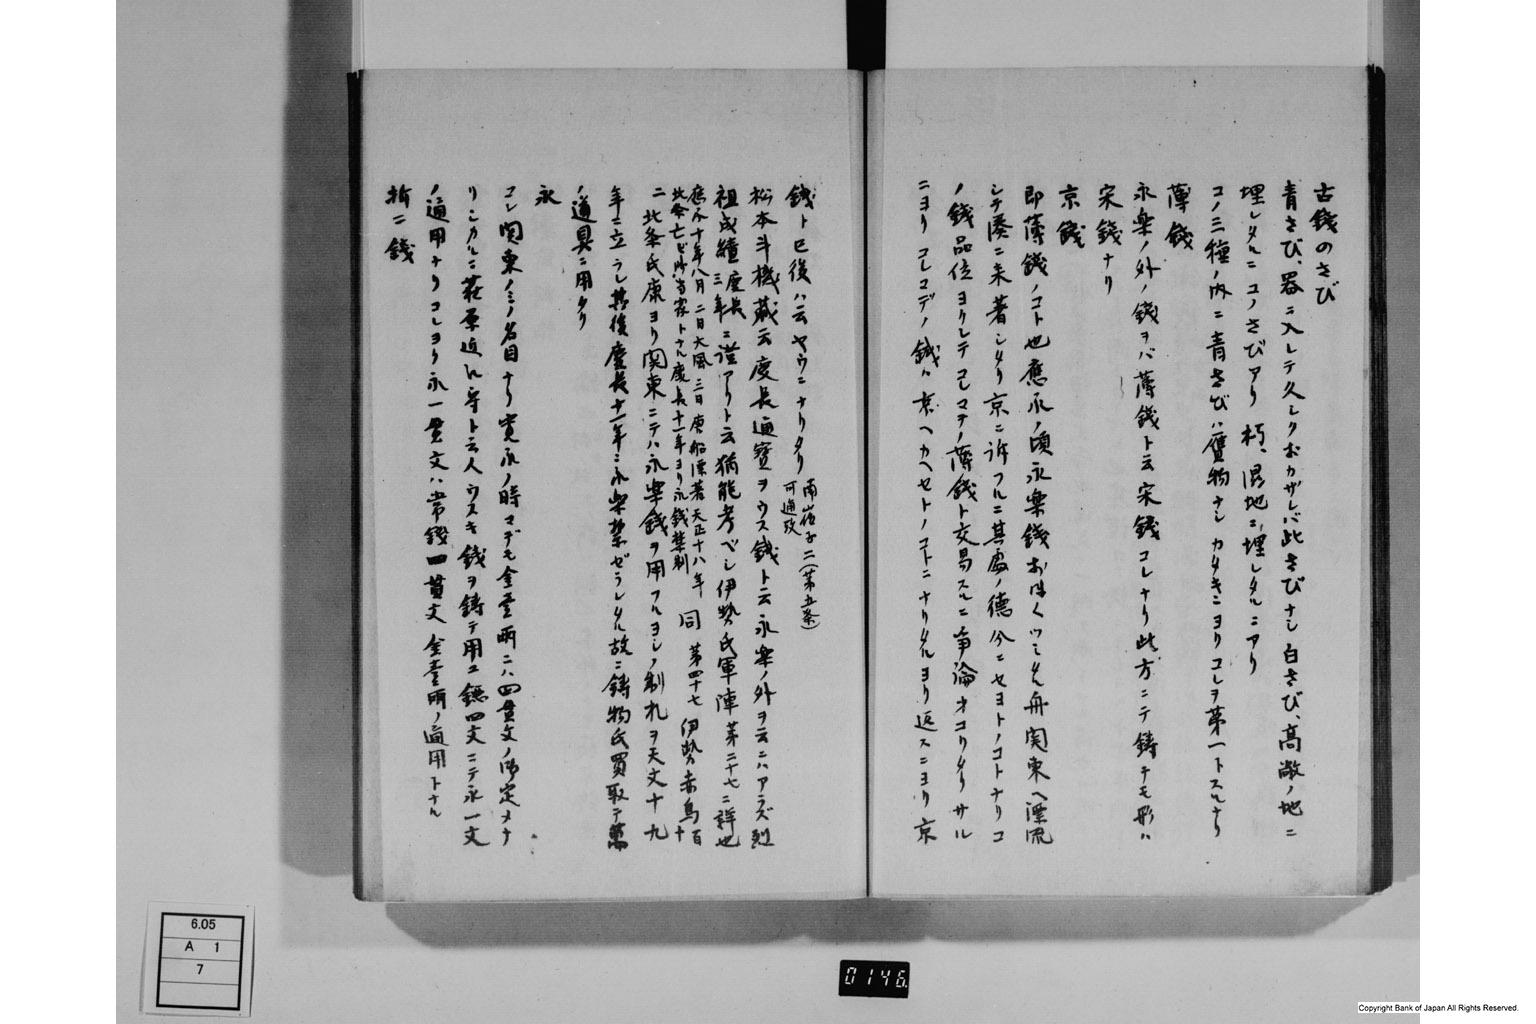 古錢のさび
青さび、器ニ入レテ久シクおカザレバ此さびナシ白さび、高敞ノ地ニ
埋レタルニコノさびアリ 朽、濕地ニ埋レタルニアリ
コノ三種ノ内ニ青さびハ贋物ナシカタキニヨリコレヲ第一トスルナリ
薄錢
永楽ノ外ノ錢ヲバ薄錢ト云宋錢コレナリ此方ニテ鋳テモ形ハ
宋錢ナリ
京錢
即薄錢ノコト也應永ノ頃永楽錢おほくツミタル舟関東ヘ漂流
シテ湊ニ来着シタリ京ニ訴フルニ其處ノ徳分ニセヨトノコトナリコ
ノ錢品位ヨクシテコレマデノ薄錢ト交易スルニ争論オコリタリサル
ニヨリコレマデノ錢ハ京ヘカヘセトノコトニナリタルヨリ返スニヨリ京
錢ト已後ハ云ヤウニナリタリ 南嶺子二(第五条)
可通考
松本斗機蔵云慶長通寳ヲウス錢ト云永楽ノ外ヲ云ニハアラズ烈
祖成績慶長三年ニ證アリト云猶能考ベシ伊勢氏軍陣第二十七ニ詳也
應永十年八月二日大風三日唐船漂着天正十八年 同 第四十七 伊勢赤烏百
北条亡ビ御当家トナル慶長十一年ヨリ永錢禁制 十
二 北条氏康ヨリ関東ニテハ永楽錢ヲ用フルヨシノ制札ヲ天文十九
年ニ立ラレ其後慶長十一年ニ永楽禁ゼラレタル故ニ鋳物氏買取テ萬
ノ道具ニ用タリ
永
コレ関東ノミノ名目ナリ寛永ノ時マデモ金壹両ニハ四貫文ノ御定メナ
リシカルニ荻原近江守ト云人ウスキ錢ヲ鋳テ用ユ鐚四文ニテ永一文
ノ通用ナリコレヨリ永一貫文ハ常錢四貫文金壹両ノ通用トナル
折二錢
6.05
A 1
7
0146
Copyright Bank of Japan All Rights Reserved.